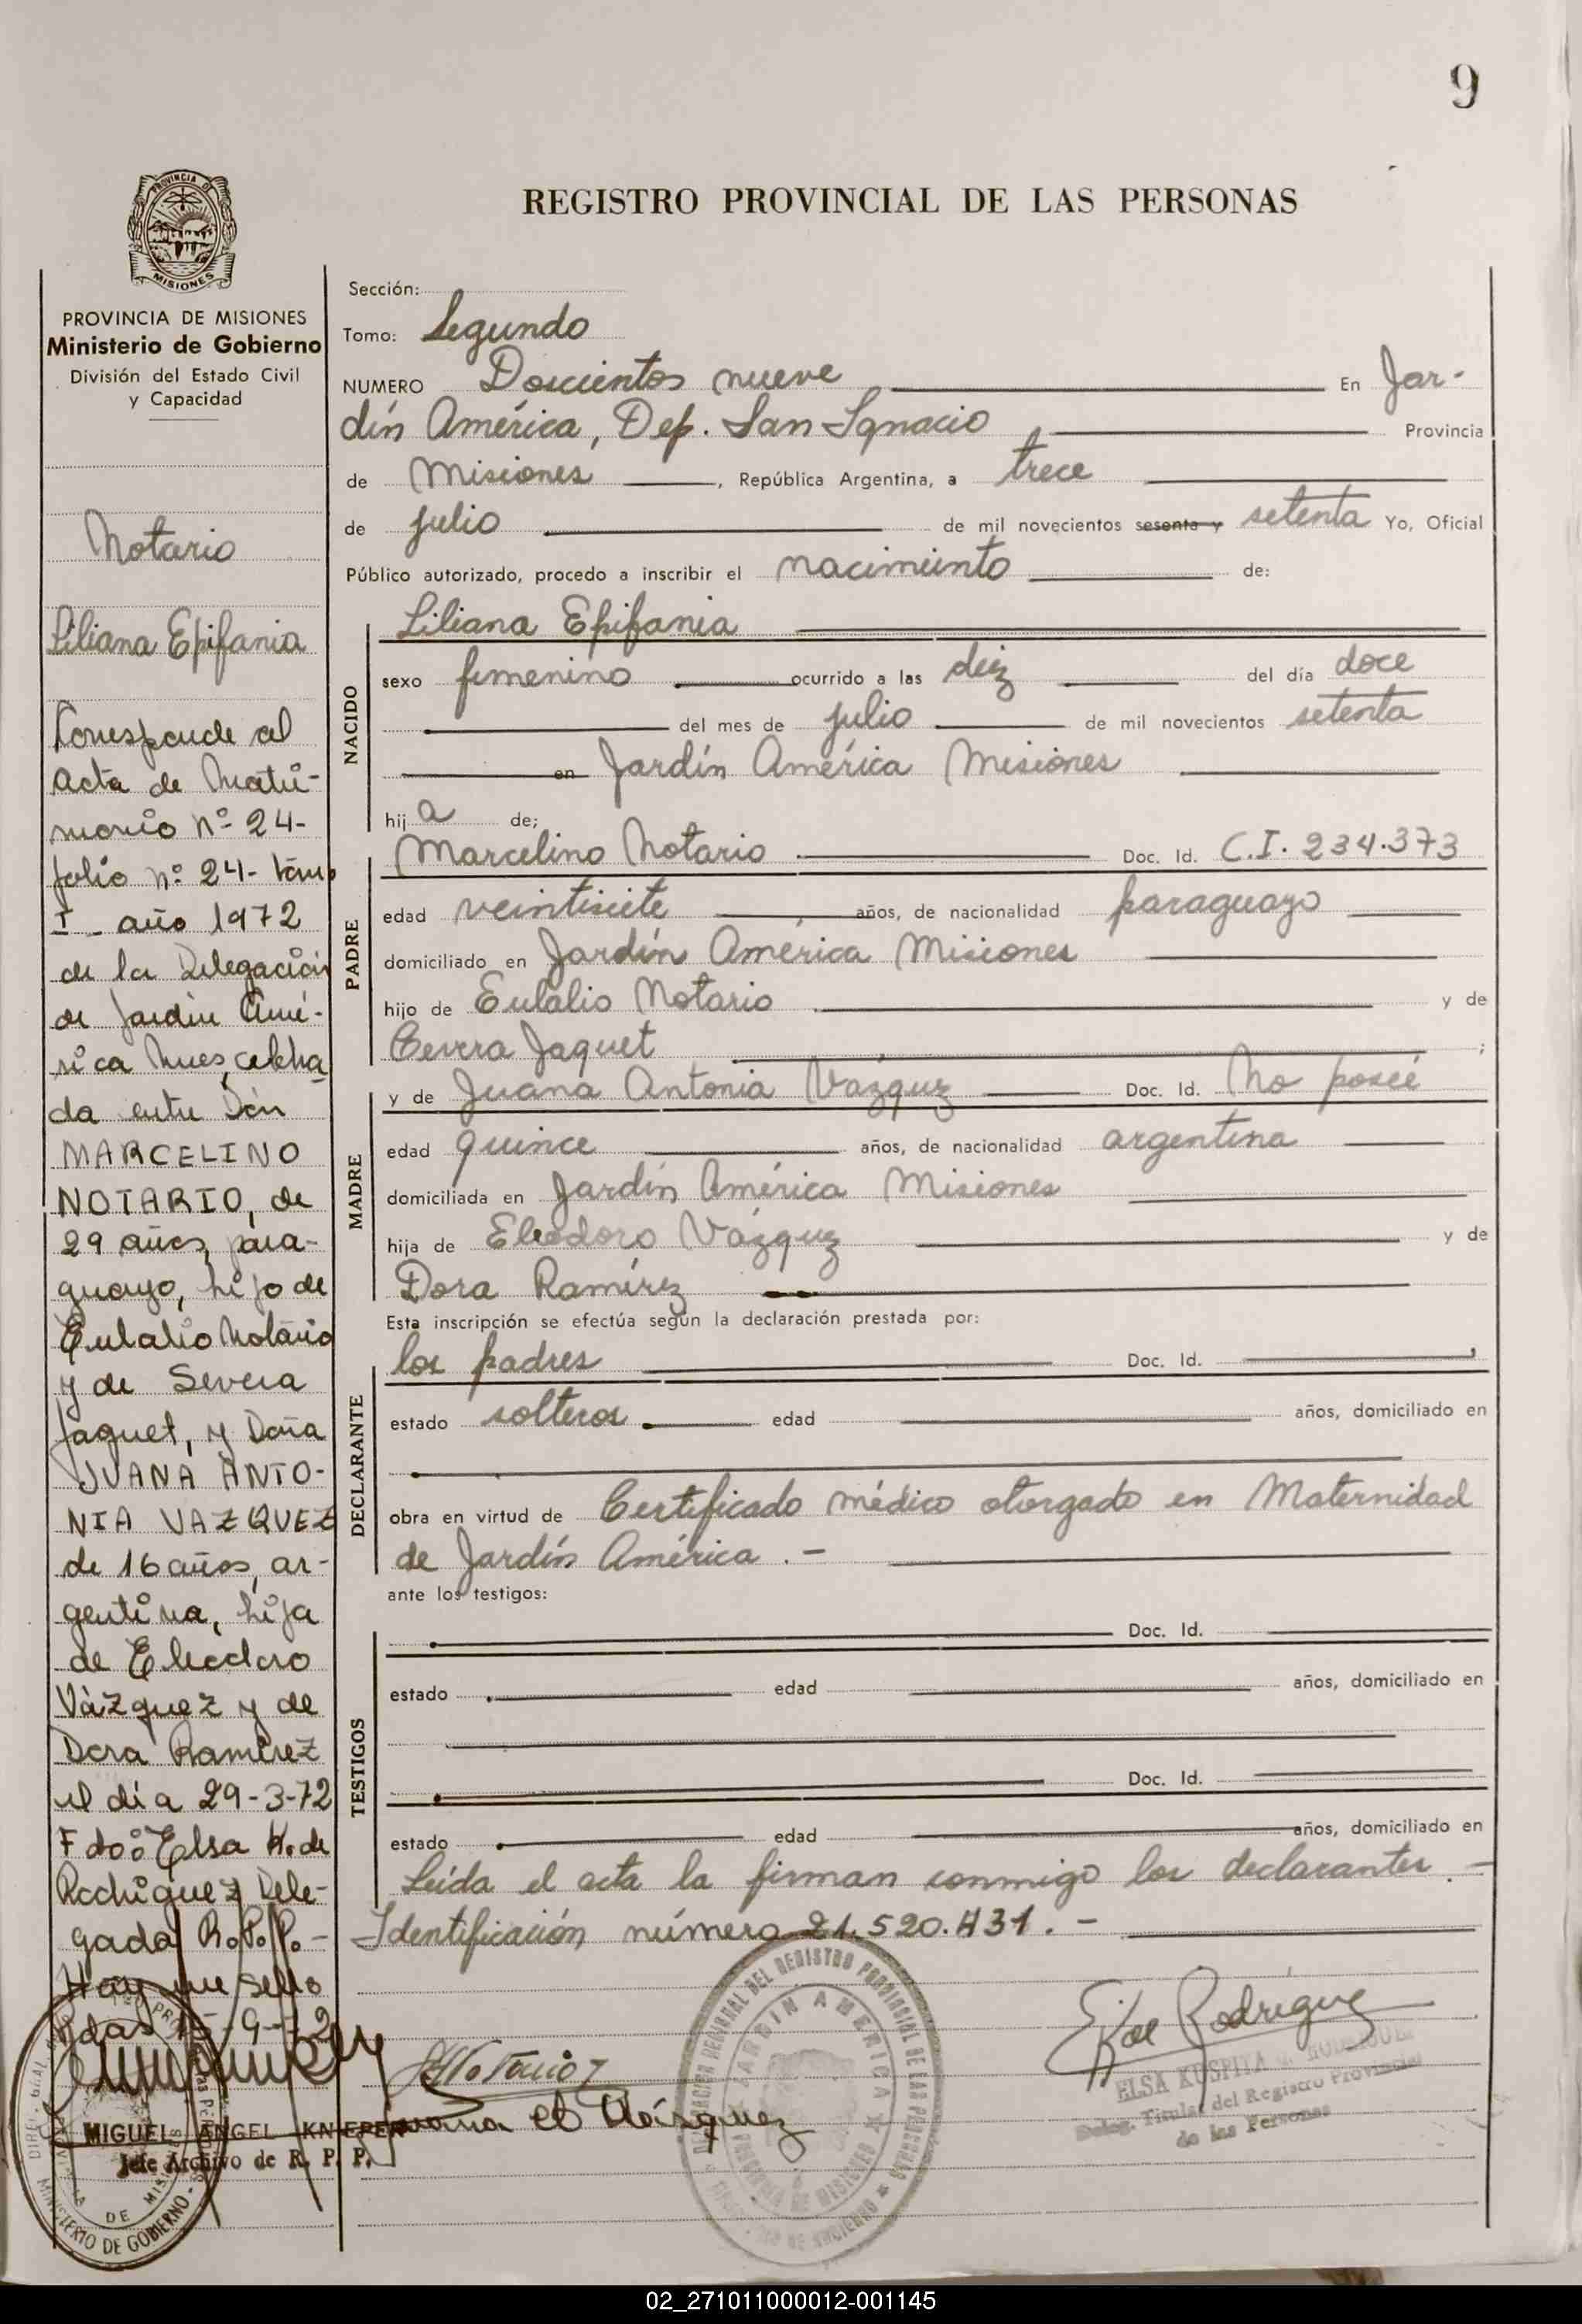 9
REGISTRO PROVINCIAL DE LAS PERSONAS
PROVINCIA DE
MISIONES
PROVINCIA DE MISIONES
Ministerio de Gobierno
División del Estado Civil
y Capacidad
Notario
Liliana Epifania
Corresponde al
acta de Matri-
monio nº 24-
folio nº 24- tomo
I - año 1972
de la Delegación
de Jardín Amé-
rica Mnes, celebra
da entre Don
MARCELINO
NOTARIO, de
29 años, para-
guayo, hijo de
Eulalio Notario
y de Severa
Jaquet, y Doña
JUANA ANTO-
NIA VAZQUEZ
de 16 años, ar-
gentina, hija
de Eleodoro
Vázquez y de
Dora Ramírez
el día 29-3-72
Fdo: Elsa K. de
Rodríguez Dele-
gada R.P.P.-
Hay un sello
Pdas 15-9-72
MIGUEL ANGEL KNEPER
Jefe Archivo de R. P. P.
MINISTERIO DE GOBIERNO
Sección:
Tomo: Segundo
NUMERO Doscientos nueve En Jar-
dín América, Dep. San Ignacio Provincia
de Misiones, República Argentina, a trece
de julio de mil novecientos sesenta y setenta Yo, Oficial
Público autorizado, procedo a inscribir el nacimiento de:
NACIDO
Liliana Epifania
sexo femenino ocurrido a las diez del día doce
del mes de julio de mil novecientos setenta
en Jardín América Misiones
hija de;
PADRE
Marcelino Notario Doc. Id. C.I. 234.373
edad veintisiete años, de nacionalidad paraguayo
domiciliado en Jardín América Misiones
hijo de Eulalio Notario y de
Cevera Jaquet ;
MADRE
y de Juana Antonia Vázquez Doc. Id. No poseé
edad quince años, de nacionalidad argentina
domiciliada en Jardín América Misiones
hija de Eleodoro Vázquez y de
Dora Ramírez
Esta inscripción se efectúa según la declaración prestada por:
DECLARANTE
los padres Doc. Id.
estado solteros edad años, domiciliado en
obra en virtud de Certificado médico otorgado en Maternidad
de Jardín América.-
ante los testigos:
TESTIGOS
Doc. Id.
estado edad años, domiciliado en
Doc. Id.
estado edad años, domiciliado en
Leída el acta la firman conmigo los declarantes.-
Identificación número 21.520.431.-
DELEGACION REGIONAL DEL REGISTRO PROVINCIAL DE LAS PERSONAS
JARDIN AMERICA
PROVINCIA DE MISIONES
Notario
Juana A Vásquez
E K de Rodríguez
ELSA KUSPITA de RODRIGUEZ
Deleg. Titular del Registro Provincial
de las Personas
02_271011000012-001145